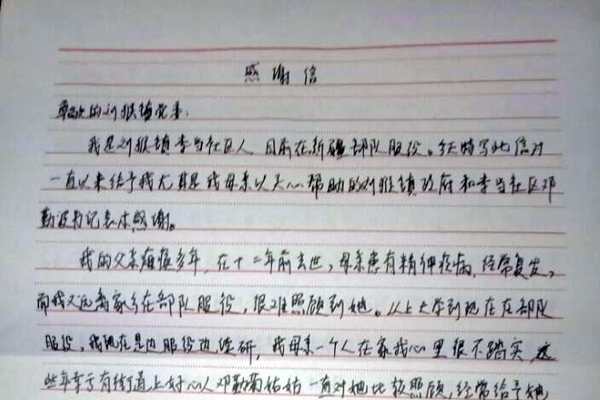 感谢信
尊敬的刘猴镇党委:
我是刘猴镇李当社区人,目前在新疆部队服役。今特写此信对
一直以来给予我尤其是我母亲以关心帮助的刘猴镇政府和李当社区邓
勤波书记表示感谢。
我的父亲瘫痪多年,在十二年前去世,母亲患有精神疾病,经常复发,
而我又远离家乡在部队服役,很难照顾到她。以上大学到现在在部队
服役,我现在是边服役边读研,我母亲一个人在家我心里很不踏实
些年幸亏有街道上好心人邓勤菊姑姑一直对她比较照顾,经常给予她